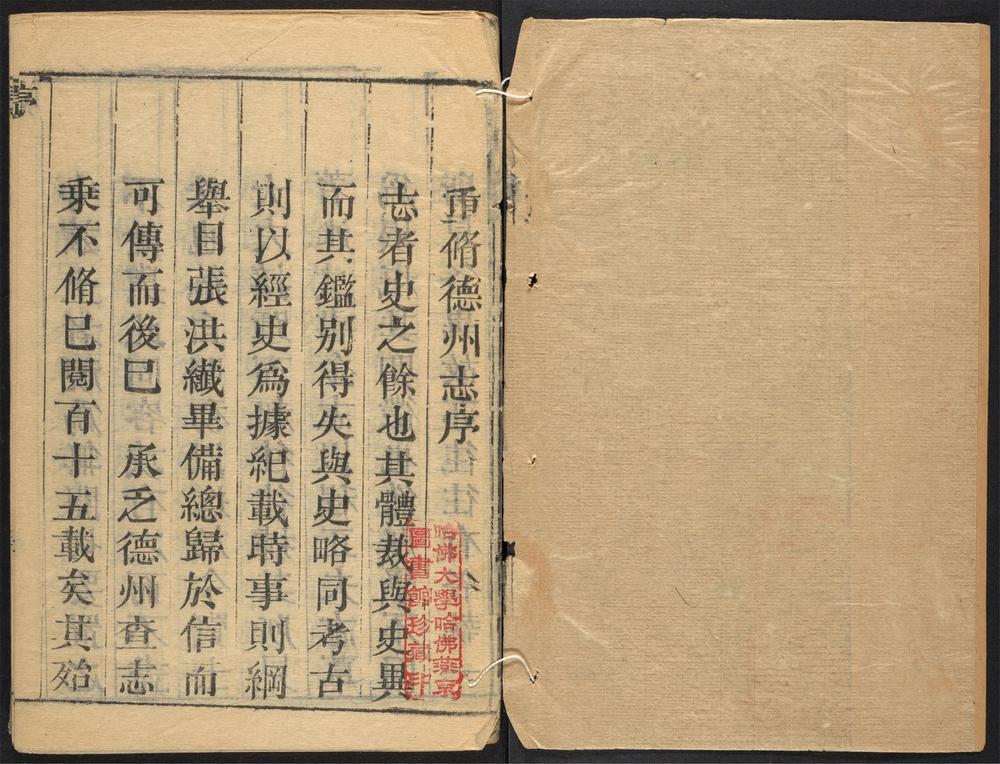 重脩德州志序
志者史之餘也其體裁與史異
而其鑑別得失與史略同考古
則以經史爲據紀載時事則綱
舉目張洪纖畢備總歸於信而
可傳而後已　承乏德州查志
乘不脩已閱百十五載矣其殆
哈佛大學哈佛燕京
圖書館珍藏印